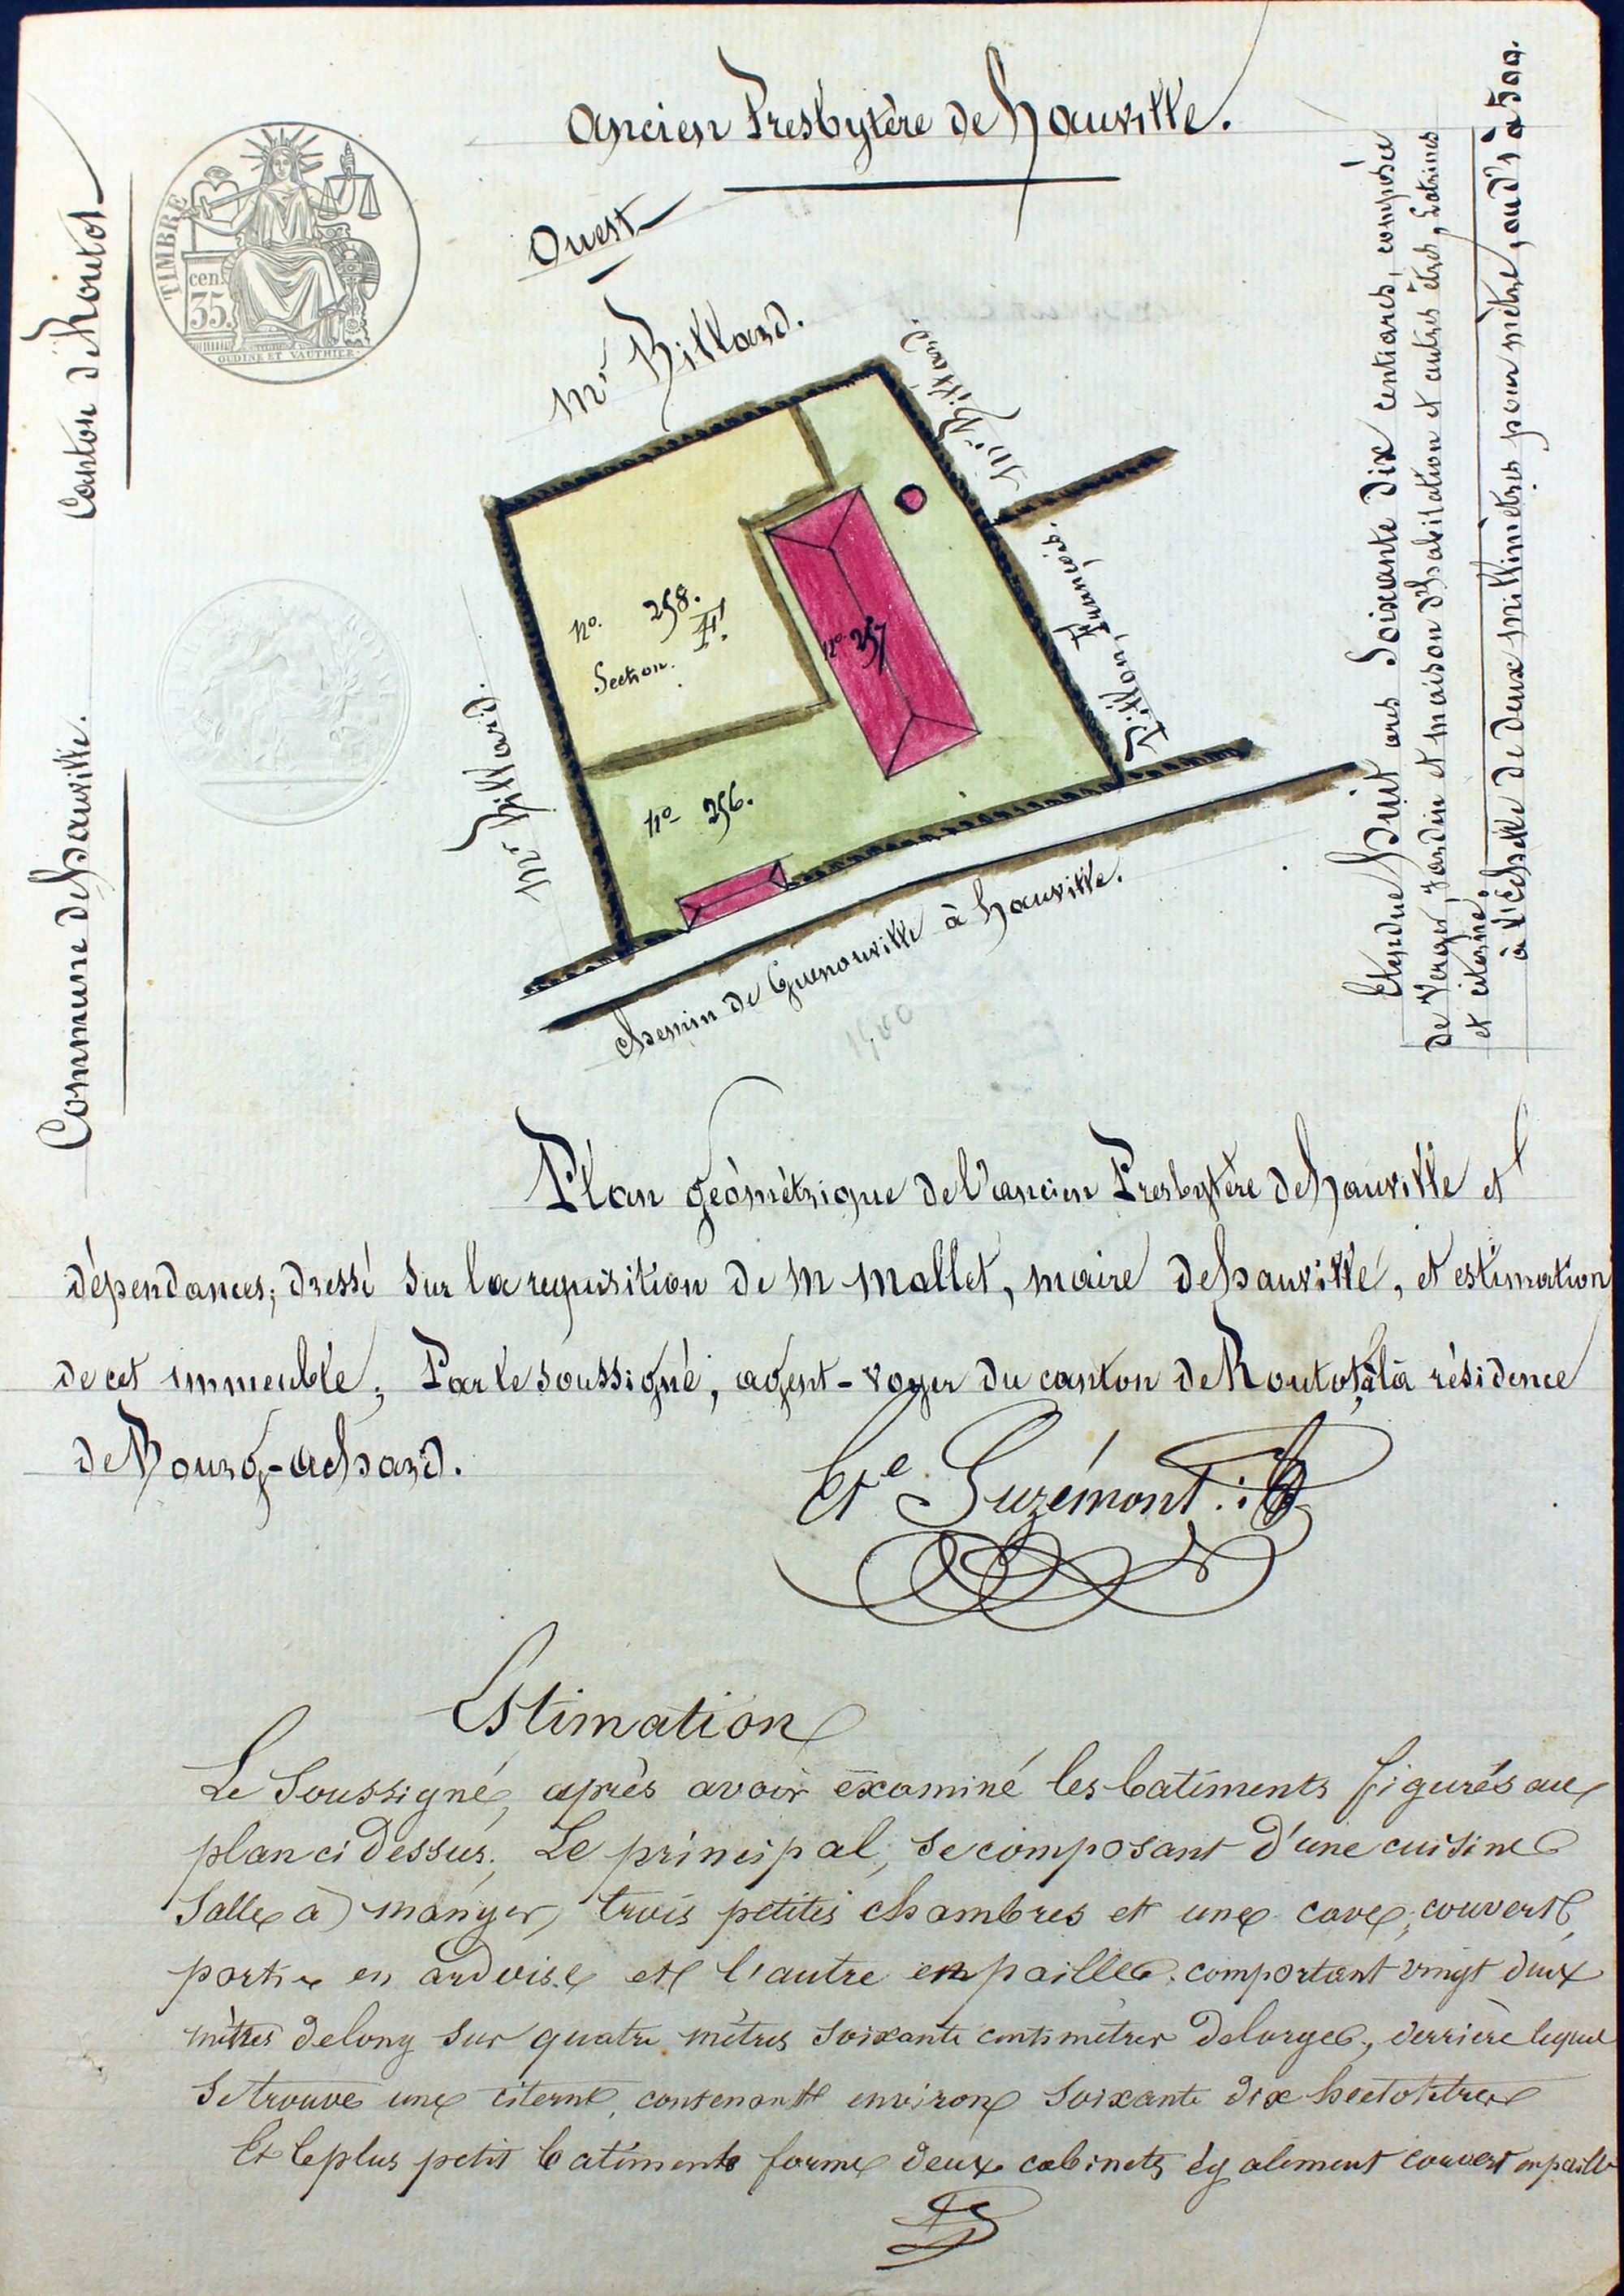 Ancien Presbytère de hauville.
Canton de Routot
Commune de hauville.
TIMBRE
cen.
35.
OUDINE ET VAUTHIER
Ouest
Mr Billard.
Mr Billard
Mr Billard.
Pillon, François.
no. 258.
Section. H.
no. 257
no 256.
chemin de Guenouville à hauville.
1500
Etendue huit ares Soixante Dix centiares, composée
de Verger, jardin et maison d'habitation et autres êtres, Latrines
et citerne;
à l'échelle de deux millimètres pour mètre, ou d'1 à 500.
Plan géométrique de l'ancien Presbytère de hauville et
dépendances, dressé sur la requisition de m mallet, maire de hauville, et estimation
de cet immeuble, Par le soussigné, agent-voyer du canton de Routot, à la résidence
de Bourg-achard.
Ete Suzémont
Estimation
Le Soussigné, après avoir éxaminé les batiments figurés au
plan ci dessus, Le principal, se composant d'une cuisine
Salle à manger, trois petites chambres et une cave, couvert
partie en ardoise et l'autre en paille, comportant vingt deux
mètres de long sur quatre mètres soixante centimètres de large, derrière lequel
se trouve une citerne, contenant environ soixante dix hectolitres
Et le plus petit batiment forme deux cabinets également couvert en paille